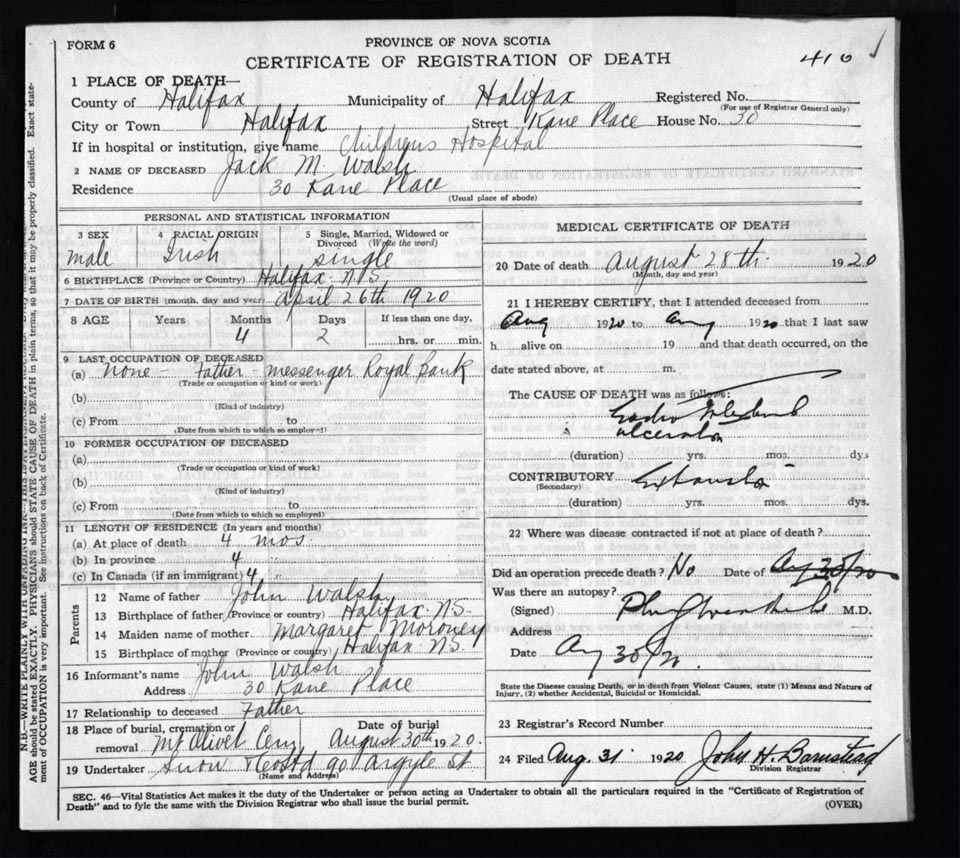 FORM 6
PROVINCE OF NOVA SCOTIA
CERTIFICATE OF REGISTRATION OF DEATH
410
1 PLACE OF DEATH—
County of Halifax Municipality of Halifax Registered No.
(For use of Registrar General only)
City or Town Halifax Street Kane Place House No. 30
If in hospital or institution, give name Childrens Hospital
2 NAME OF DECEASED Jack M. Walsh
Residence 30 Kane Place
(Usual place of abode)
PERSONAL AND STATISTICAL INFORMATION
3 SEX 4 RACIAL ORIGIN 5 Single, Married, Widowed or Divorced (Write the word)
male Irish single
6 BIRTHPLACE (Province or Country) Halifax N S
7 DATE OF BIRTH (month, day and year) April 26th 1920
8 AGE Years Months Days If less than one day,
4 2 hrs. or min.
9 LAST OCCUPATION OF DECEASED
(a) None - Father - messenger Royal Bank
(Trade or occupation or kind of work)
(b)
(Kind of industry)
(c) From to
(Date from which to which so employed)
10 FORMER OCCUPATION OF DECEASED
(a)
(Trade or occupation or kind of work)
(b)
(Kind of industry)
(c) From to
(Date from which to which so employed)
11 LENGTH OF RESIDENCE (In years and months)
(a) At place of death 4 mos.
(b) In province 4 "
(c) In Canada (if an immigrant) 4 "
Parents
12 Name of father John Walsh
13 Birthplace of father (Province or country) Halifax N.S.
14 Maiden name of mother Margaret Moroney
15 Birthplace of mother (Province or country) Halifax N.S.
16 Informant's name John Walsh
Address 30 Kane Place
17 Relationship to deceased Father
18 Place of burial, cremation or removal Mt Olivet Cem Date of burial August 30th 1920.
19 Undertaker Snow 90 Argyle St
(Name and Address)
MEDICAL CERTIFICATE OF DEATH
20 Date of death August 28th 1920
(Month, day and year)
21 I HEREBY CERTIFY, that I attended deceased from
Aug 1920 to Aug 1920 that I last saw
h alive on 19 and that death occurred, on the
date stated above, at m.
The CAUSE OF DEATH was as follows:
ulceration
(duration) yrs. mos. dys
CONTRIBUTORY Exhaustion
(Secondary)
(duration) yrs. mos. dys.
22 Where was disease contracted if not at place of death?
Did an operation precede death? No Date of Aug 30/20
Was there an autopsy?
(Signed) M.D.
Address
Date Aug 30/20.
State the Disease causing Death, or in death from Violent Causes, state (1) Means and Nature of
Injury, (2) whether Accidental, Suicidal or Homicidal.
23 Registrar's Record Number
24 Filed Aug. 31 1920 John H. Barnstead
Division Registrar
SEC. 46—Vital Statistics Act makes it the duty of the Undertaker or person acting as Undertaker to obtain all the particulars required in the "Certificate of Registration of
Death" and to fyle the same with the Division Registrar who shall issue the burial permit.
(OVER)
AGE should be stated EXACTLY. PHYSICIANS should STATE CAUSE OF DEATH in plain terms, so that it may be properly classified. Exact state-
ment of OCCUPATION is very important. See instructions on back of Certificate.